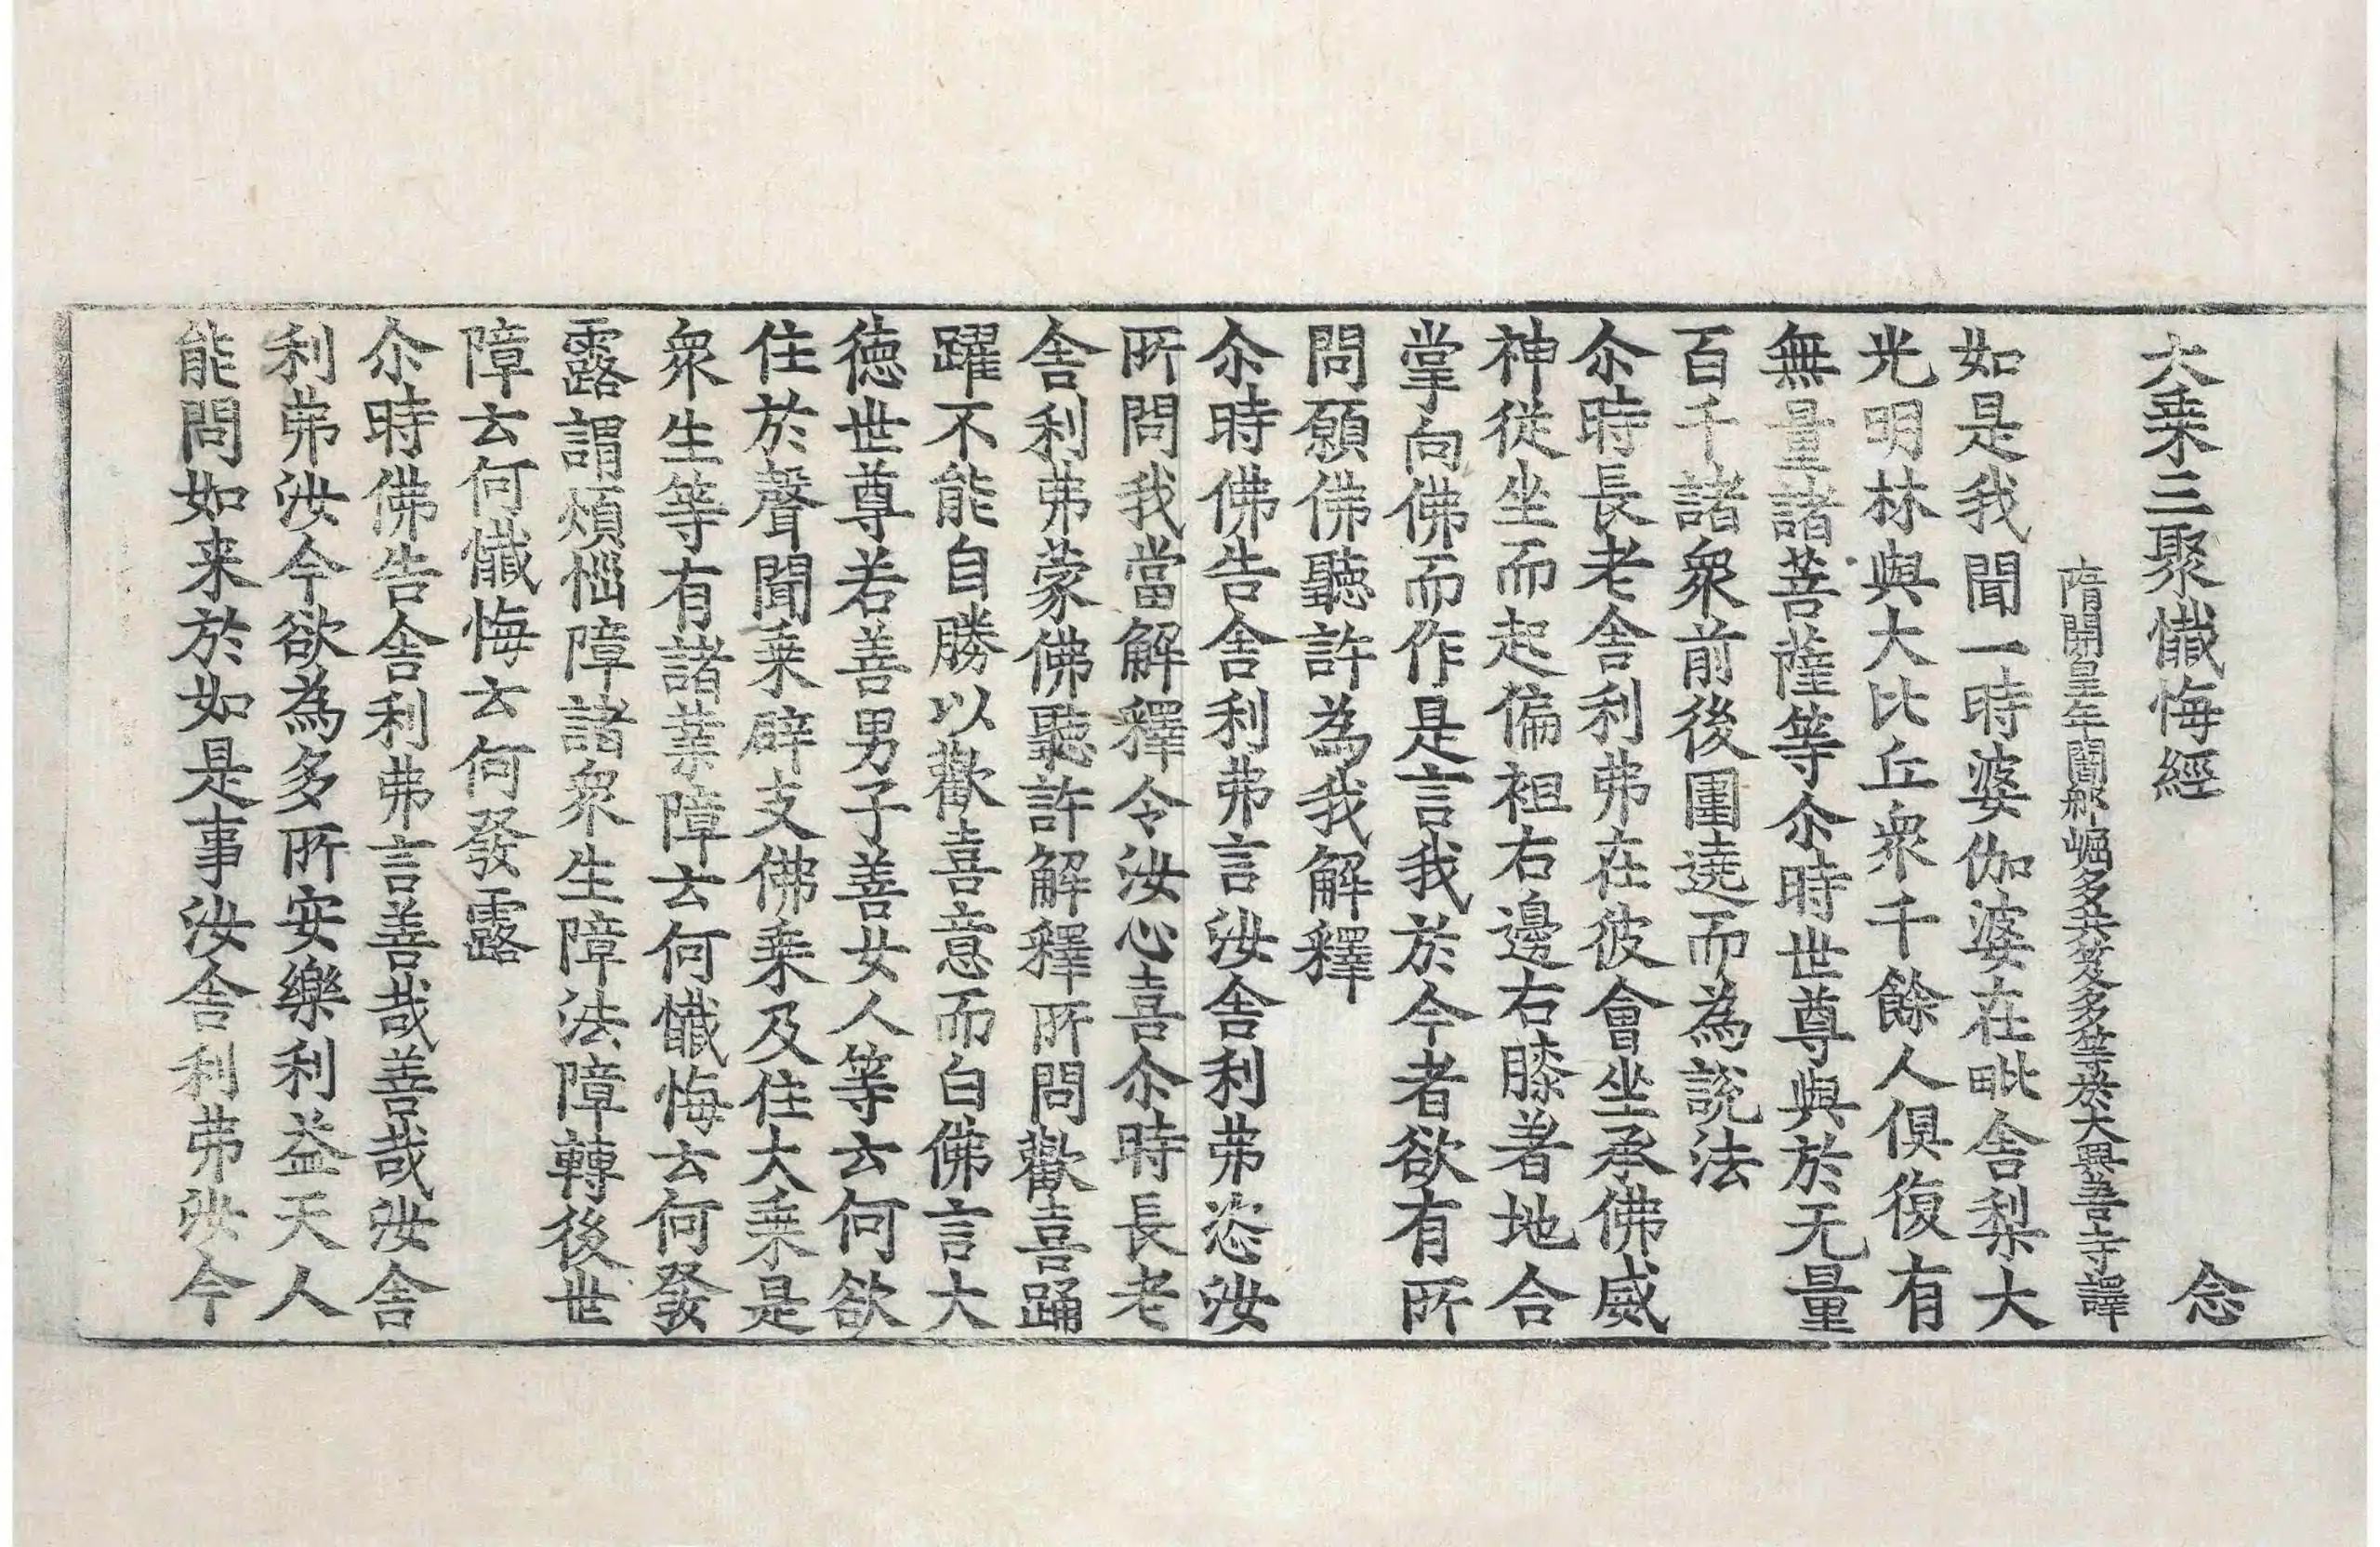 大乗三聚懺悔經　念
隋開皇年闍那崛多共笈多等於大興善寺譯
如是我聞一時婆伽婆在毗舎梨大
光明林與大比丘衆千餘人俱復有
無量諸菩薩等尒時世尊與於无量
百千諸衆前後圍遶而為説法
尒時長老舎利弗在彼會坐承佛威
神從坐而起偏袒右邊右膝著地合
掌向佛而作是言我於今者欲有所
問願佛聽許為我解釋
尒時佛告舎利弗言汝舎利弗恣汝
所問我當解釋令汝心喜尒時長老
舎利弗蒙佛聽許解釋所問歡喜踊
躍不能自勝以歡喜意而白佛言大
徳世尊若善男子善女人等云何欲
住於聲聞乗辟支佛乗及住大乗是
衆生等有諸業障云何懺悔云何發
露謂煩惱障諸衆生障法障轉後世
障云何懺悔云何發露
尒時佛告舎利弗言善哉善哉汝舎
利弗汝今欲為多所安樂利益天人
能問如来於如是事汝舎利弗汝今